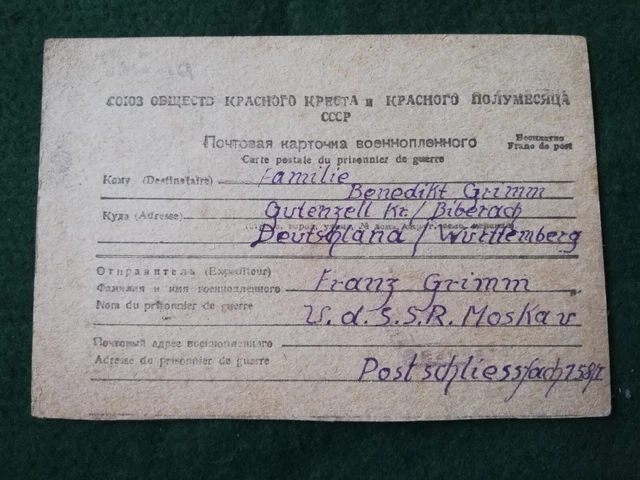 СОЮЗ ОБЩЕСТВ КРАСНОГО КРЕСТА и КРАСНОГО ПОЛУМЕСЯЦА
СССР
Почтовая карточка военнопленного
Carte postale du prisonnier de guerre
Бесплатно
Franc de port
Кому (Destinataire) Familie
Benedikt Grimm
Куда (Adresse) Gutenzell Kr./Biberach
Deutschland/Württemberg
Отправитель (Expéditeur)
Фамилия и имя военнопленного Franz Grimm
Nom du prisonnier de guerre U.d.S.S.R. Moskau
Почтовый адрес военнопленного
Adresse du prisonnier de guerre Postschliessfach